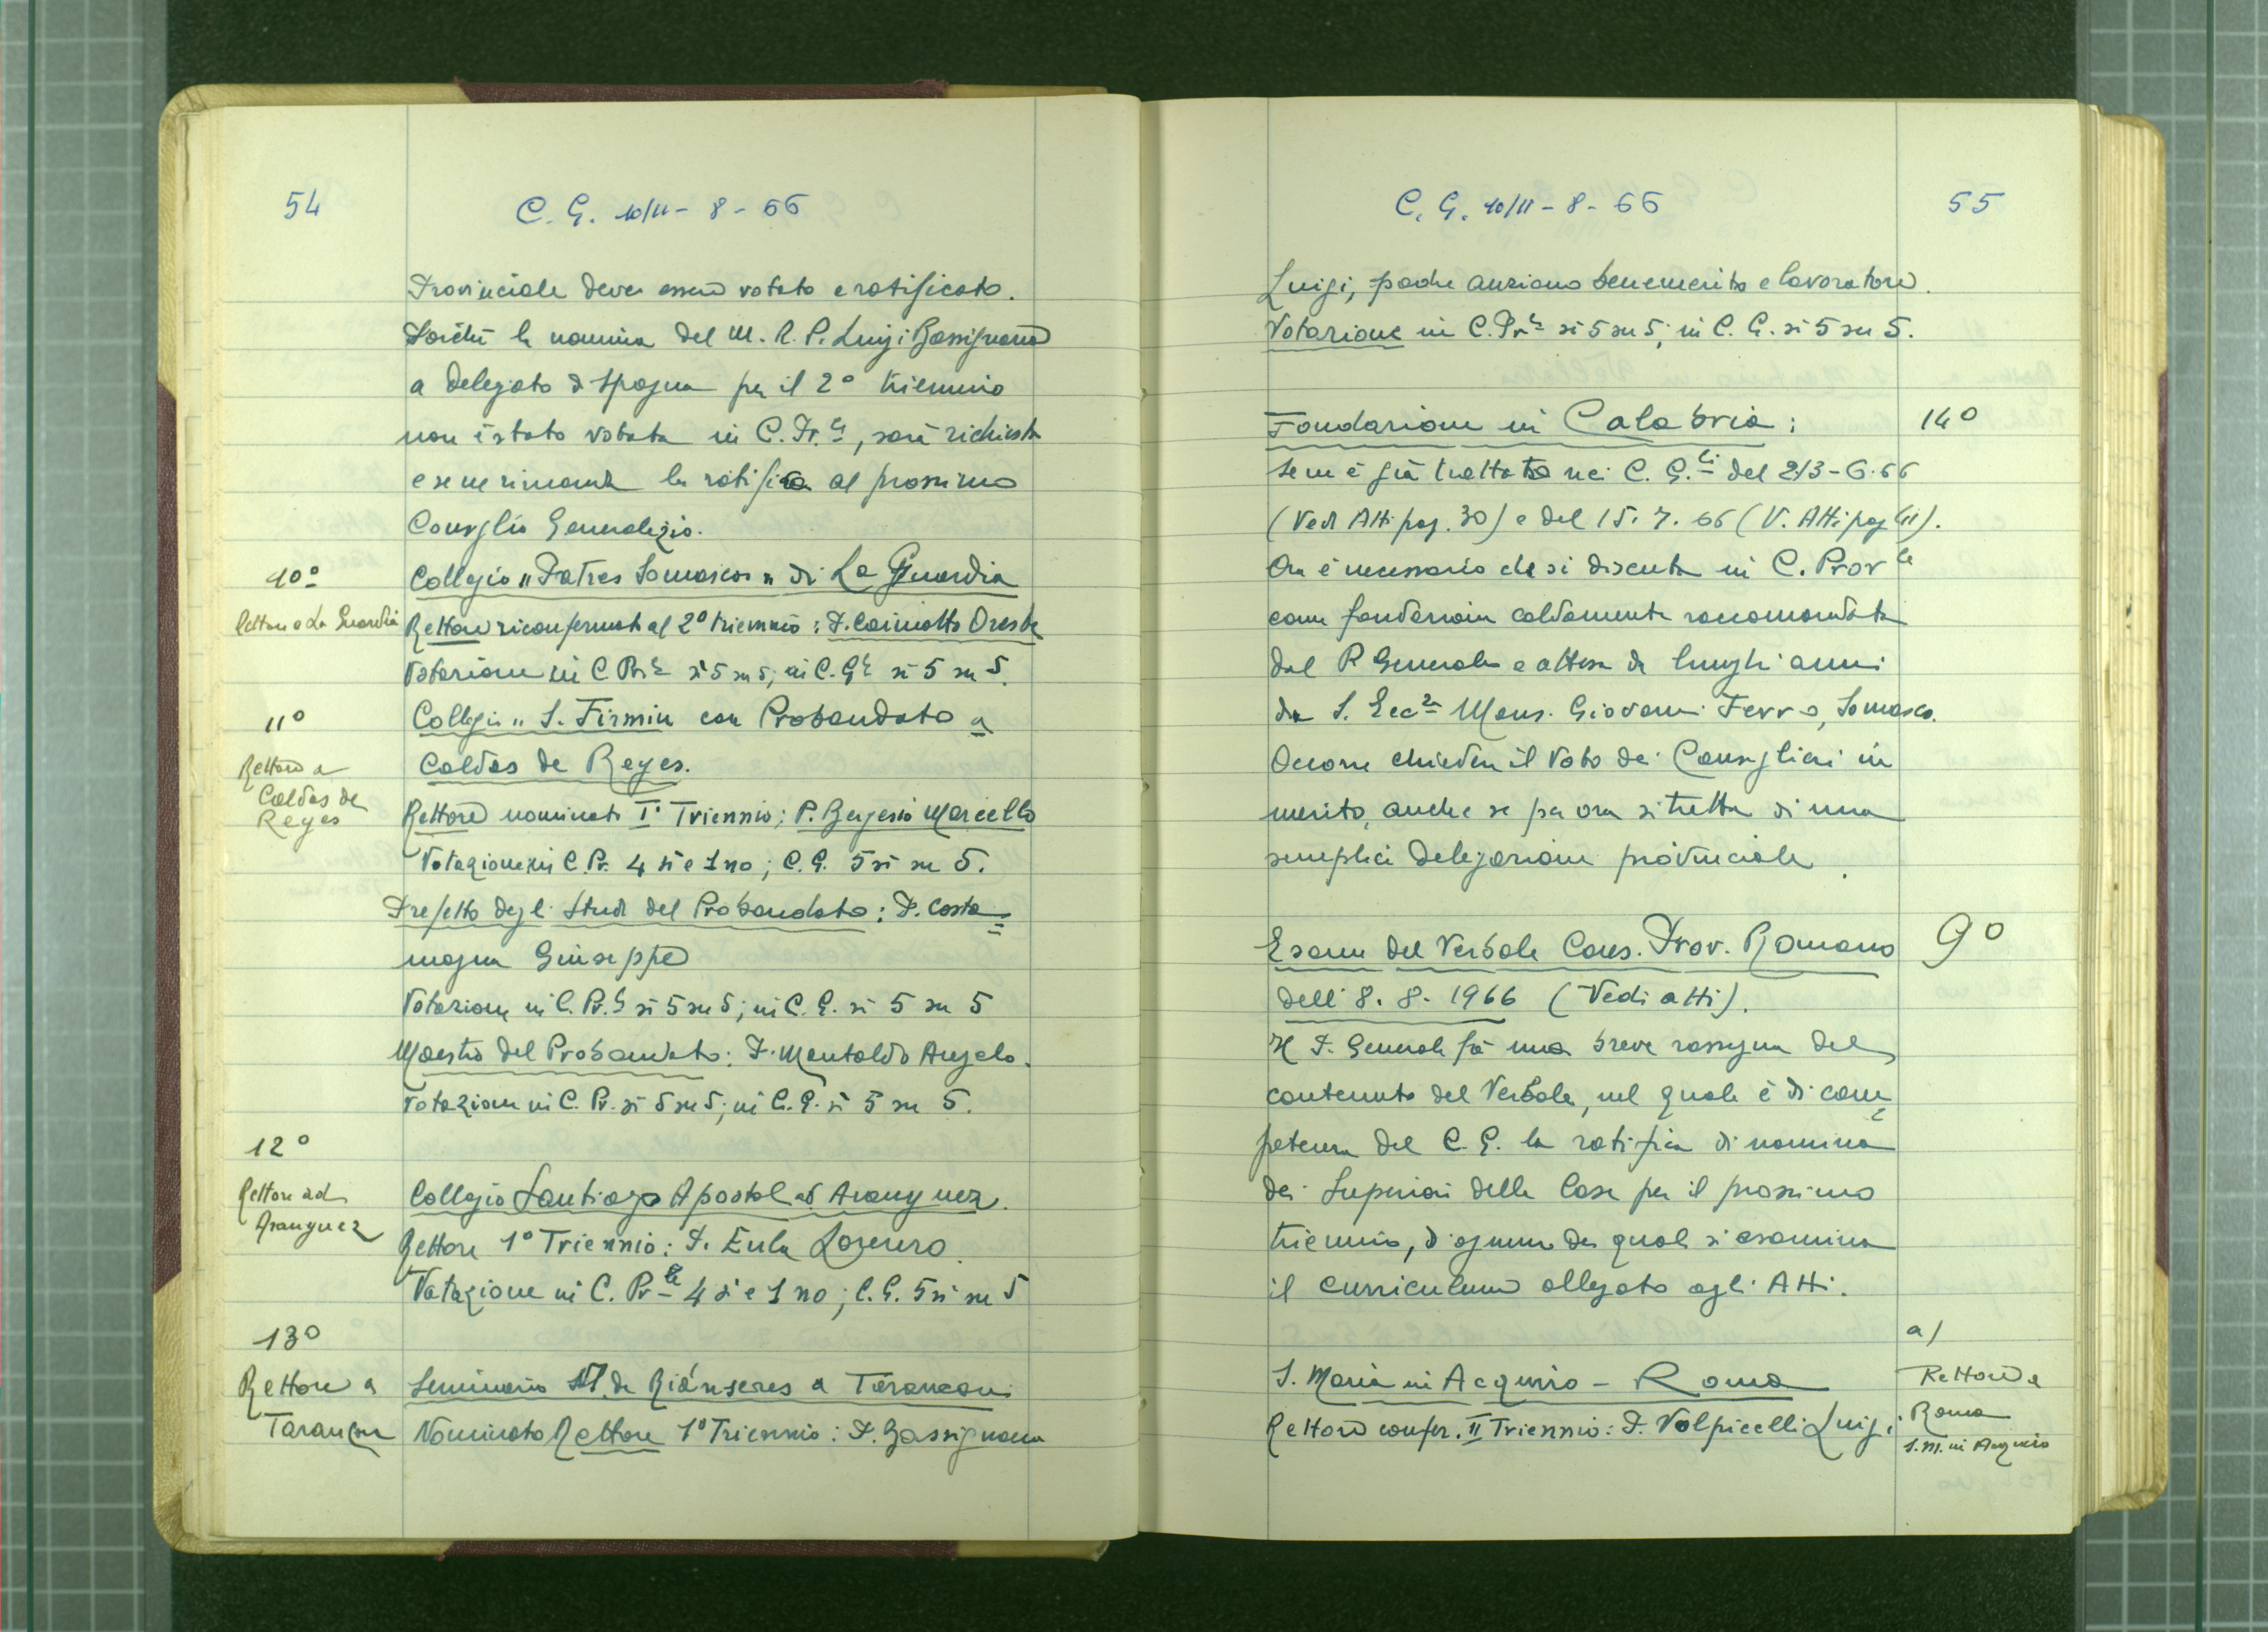 54
C. G. 10/11 - 8 - 66
Provinciale deve essere votato e ratificato.
Poiché la nomina del M. R. P. Luigi Bassignana
a Delegato di Spagna per il 2° triennio
non è stata votata in C. Pr.le, sarà richiesta
e se ne rimanda la ratifica al prossimo
Consiglio Generalizio.
10°
Collegio "Patres Somascos" di La Guardia
Rettore a La Guardia
Rettore riconfermato al 2° triennio: P. Caimotto Oreste
Votazione in C. Prle sì 5 su 5; in C. Gle sì 5 su 5.
11°
Collegio "S. Firmin con Probandato a
Caldas de Reyes.
Rettore a
Caldas de
Reyes
Rettore nominato I° Triennio: P. Bergesio Marcello
Votazione in C. Pr. 4 sì e 1 no; C. G. 5 sì su 5.
Prefetto degli Studi del Probandato: P. Costa=
magna Giuseppe
Votazione in C. Pr.le sì 5 su 5; in C. G. sì 5 su 5
Maestro del Probandato: P. Montaldo Angelo.
Votazione in C. Pr. sì 5 su 5; in C. G. sì 5 su 5.
12°
Rettore ad
Aranguez
Collegio Santiago Apostol ad Aranguez.
Rettore 1° Triennio: P. Eula Lorenzo.
Votazione in C. Prle 4 sì e 1 no; C. G. 5 sì su 5
13°
Rettore a
Tarancon
Seminario M. de Riánseres a Tarancon:
Nominato Rettore 1° Triennio: P. Bassignana
C. G. 10/11 - 8 - 66
55
Luigi, padre anziano benemerito e lavoratore.
Votazione in C. Prle sì 5 su 5; in C. G. sì 5 su 5.
Fondazione in Calabria:
14°
Se ne è già trattato nei C. G.li del 2/3 - 6 - 66
(Vedi Atti pag. 30) e del 15. 7. 66 (V. Atti pag 41).
Ora è necessario che si discuta in C. Prov le
come fondazione caldamente raccomandata
dal P. Generale e attesa da lunghi anni
da S. Ecc.za Mons. Giovanni Ferro, Somasco.
Occorre chiedere il Voto dei Consiglieri in
merito, anche se per ora si tratta di una
semplice Delegazione provinciale.
Esame del Verbale Cons. Prov. Romano
9°
dell'8. 8. 1966 (Vedi atti).
Il P. Generale fà una breve rassegna del
contenuto del Verbale, nel quale è di com=
petenza del C. G. la ratifica di nomina
dei Superiori delle Case per il prossimo
triennio, d'ognuno dei quali si esamina
il curriculum allegato agli Atti.
a)
S. Maria in Acquiro - Roma
Rettore a
Roma
S. M. in Acquiro
Rettore confer. II Triennio: P. Volpicelli Luigi